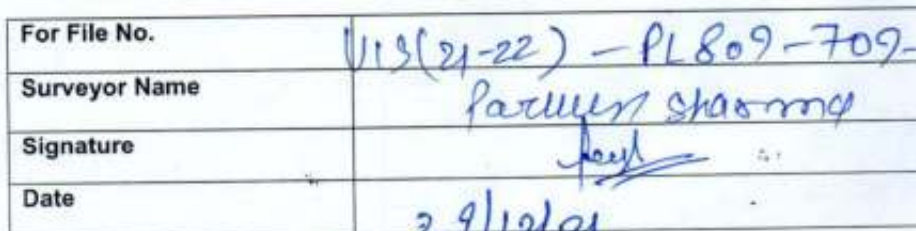 For File No. VIS(21-22) - PL809-709-
Surveyor Name Parveen Sharma
Signature
Date